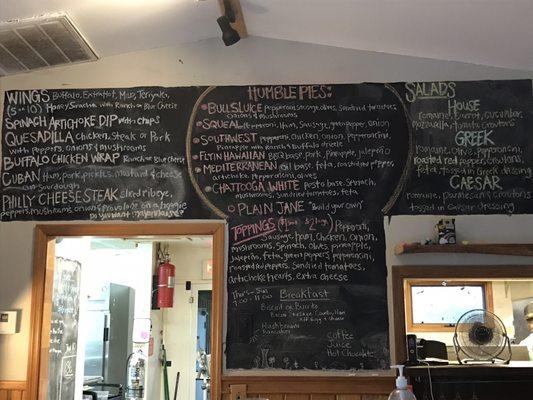 WINGS Buffalo, Extra Hot, Mild, Teriyaki,
(5 or 10) Honey Sriracha with Ranch or Blue Cheese
SPINACH ARTICHOKE DIP with chips
QUESADILLA chicken, Steak or Pork
with Peppers, onions & mushrooms
BUFFALO CHICKEN WRAP Ranch or Blue cheese
CUBAN Ham, pork, pickles, mustard & cheese
on Sourdough
PHILLY CHEESESTEAK shaved ribeye,
peppers, mushrooms, onions & provolone on a hoagie
Do you want mayonnaise?
HUMBLE PIES:
BULL SLUICE Pepperoni, sausage, olives, Sundried tomatoes,
onions & mushrooms
SQUEAL Pepperoni, Ham, Sausage, green pepper, onion
SOUTHWEST Peppers, chicken, onion, pepperoncini,
Pineapple with Ranch & Buffalo drizzle
FLYIN HAWAIIAN BBQ base, pork, pineapple, jalapeño
MEDITERRANEAN Evoo base, feta, roasted peppers,
artichoke, pepperoncini, olives
CHATTOOGA WHITE Pesto base, Spinach,
mushrooms, sundried tomatoes, feta
PLAIN JANE "Build your own"
TOPPINGS Pepperoni,
Sausage, Ham, Chicken, Onion,
mushrooms, Spinach, Olives, pineapple
Jalapeño, feta, green peppers, pepperoncini
roasted red peppers, Sundried tomatoes,
artichoke hearts, extra cheese
Thurs-Sun
7:00-11:00
Breakfast
Biscuit or Burrito
Bacon, Sausage, Country Ham
Hashbrowns
Pancakes
Coffee
Juice
Hot Chocolate
SALADS
HOUSE
Romaine, Carrot, cucumber,
Mozzarella, tomato, croutons
GREEK
Romaine, Olives, pepperoncini,
roasted red peppers, onions,
feta, tossed in Greek dressing
CAESAR
Romaine, parmesan & croutons
tossed in Caesar dressing